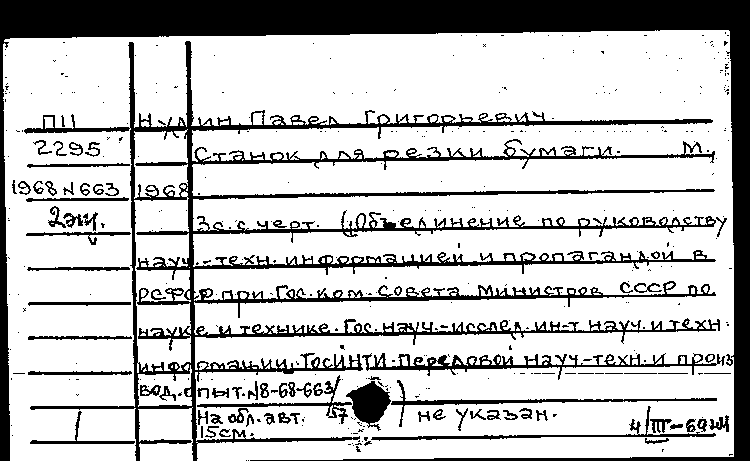 П11 Нудин, Павел Григорьевич.
2295 Станок для резки бумаги. М.,
1968 N 663 1968.
2эш. 3с. с черт. (Объединение по руководству
науч.-техн. информацией и пропагандой в
РСФСР при Гос. ком. Совета Министров СССР по
науке и технике. Гос. науч.-исслед. ин-т науч. и техн.
информации. ГосИНТИ. Передовой науч.-техн. и произ
вод. опыт. N8-68-663/
На обл. авт. 57 ) не указан.
15см. 4/III-69